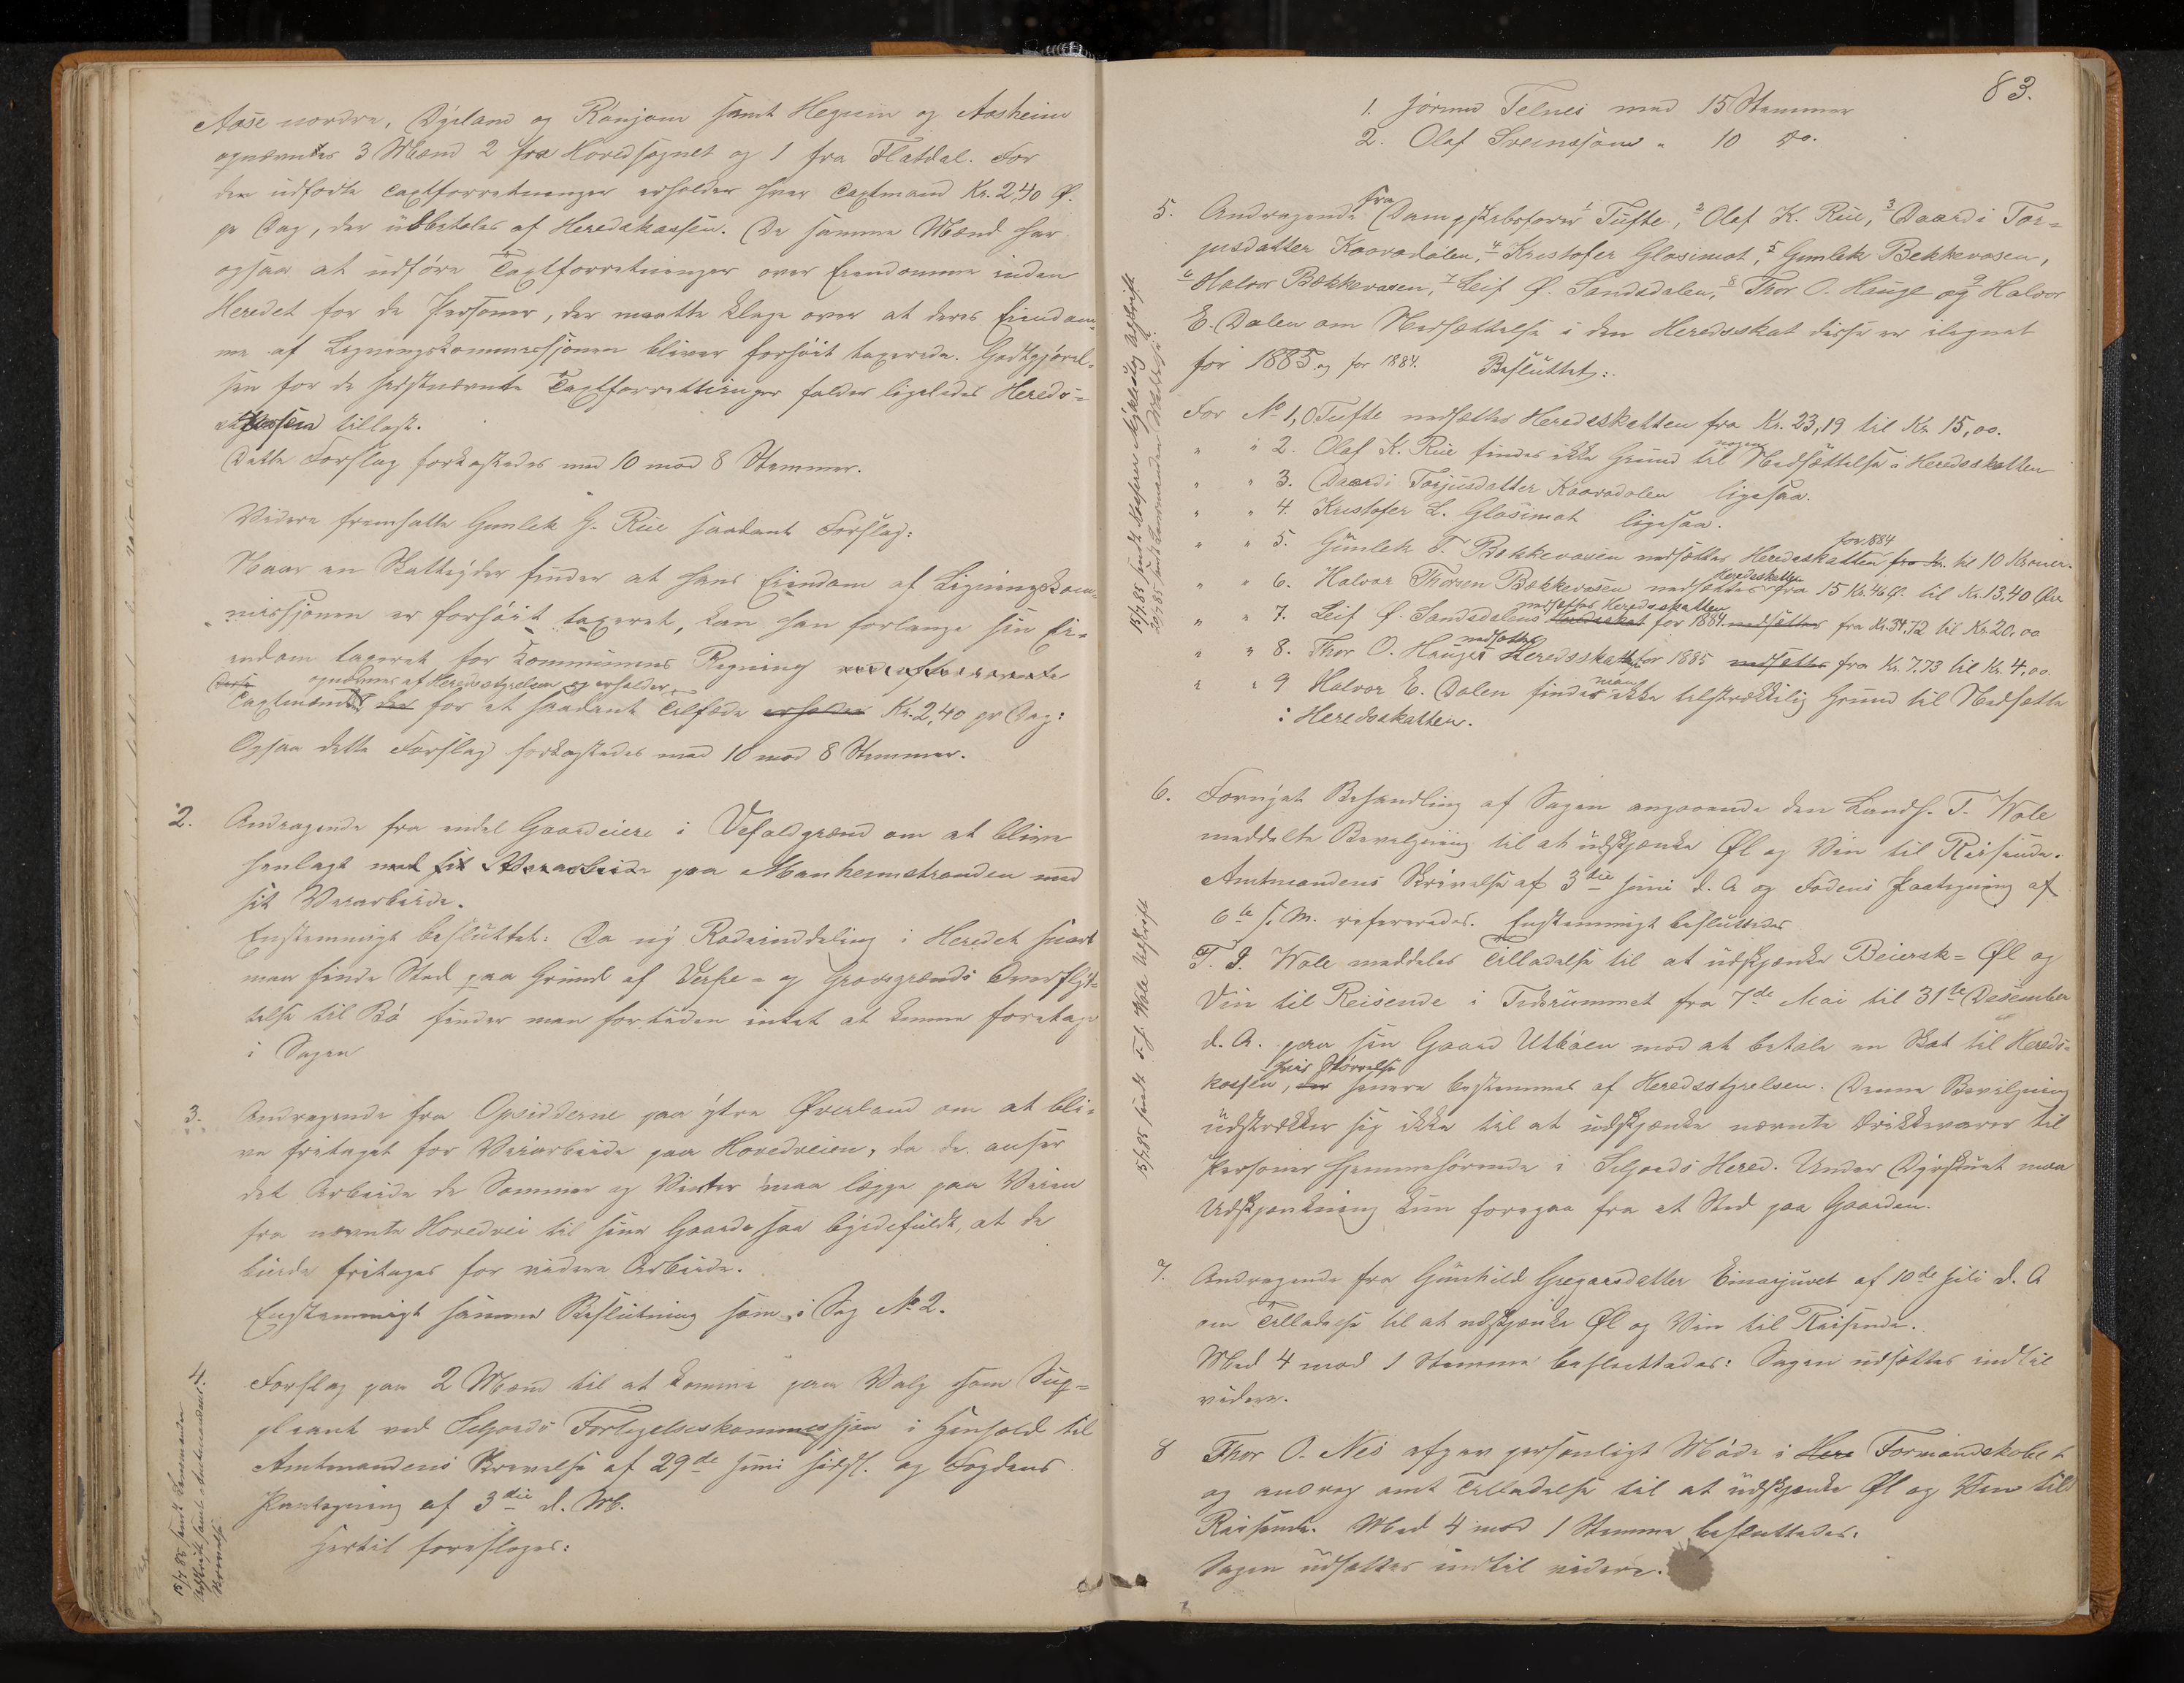 Aase nordre, Dyrland og Rønjom samt Hegnin og Aasheim
opnævntes 3 Mænd 2 fra Hovedsognet og 1 fra Flatdal. For
de udførte Taxtforretninger erholder hver Taxtmand Kr. 2,40 Ø.
pr Dag, der udbetales af Heredskassen. De samme Mænd har
ogsaa at udføre Taxtforretninger over Eiendomme inden
Heredet for de Personer, der maatte klage over at deres Eiendom-
me af Ligningskommissjonen bliver forhøit taxerede. Godtgjørel-
sen for de sidstnævnte Taxtforretninger falder ligeledes Hereds-
kassen tillast.
Dette Forslag forkastedes med 10 mod 8 Stemmer.
Videre fremsatte Gunlek G. Rue saadant Forslag:
Naar en Skatteyder finder at hans Eiendom af Ligningskom-
missjonen er forhøit taxeret, kan han forlange sin Ei-
endom taxeret for Kommunens Regning
Disse opnævnes af Heredsstyrelsen og erholder
Taxtmænd der for et saadant Tilfælde erholder Kr. 2,40 pr Dag:
Ogsaa dette Forslag forkastedes med 10 mod 8 Stemmer.
2. Andragende fra endel Gaardeiere i Vefaldgrænd om at blive
henlagt med sit Veiarbeide paa Manheimstranden med
sit Veiarbeide.
Enstemmigt besluttet: Da ny Rodeinddeling i Heredet snart
maa finde Sted paa Grund af Verpe- og Gravsgrænds Overflyt-
telse til Bø finder man fortiden intet at kunne foretage
i Sagen
3. Andragende fra Opsidderne paa ytre Øverland om at bli-
ve fritaget for Veiarbeide paa Hovedveien, da de anser
det Arbeide de Sommer og Vinter maa lægge paa Veien
fra nævnte Hovedvei til sine Gaarde saa byrdefuldt, at de
burde fritages for videre Arbeide.
Enstemmigt samme Beslutning som i Sag No 2.
4. Forslag paa 2 Mænd til at komme paa Valg som Sup-
pleant ved Seljords Forligelseskommissjon i Henhold til
Amtmandens Skrivelse af 29de Juni sidstl. og Fogdens
Paategning af 3die d. M.
Hertil foresloges:
15/7 85 sendt Lensmanden
Udskrift samt Amtmandens
Skrivelse
83.
1. Jørund Telnes med 15 Stemmer
2. Olaf Sveinssøn " 10 Do.
5. Andragende fra Dampskibsfører 1 Tufte, 2 Olaf K. Rue, 3 Daardi Tor-
jusdatter Kaavadalen, 4 Kristofer Glosimot, 5 Gunlek Bekkevasen,
6 Halvor Bækkevasen, 7 Leif Ø. Sandsdalen, 8 Thor O. Hauge og 9 Halvor
E. Dalen om Nedsættelse i den Heredsskat disse er ilignet
for 1885 og for 1884. Besluttet:
For No 1, O Tufte nedsættes Heredsskatten fra Kr. 23,19 til Kr 15,00.
" " 2. Olaf K. Rue findes ikke Grund til nogen Nedsættelse i Heredsskatten
" " 3. Daardi Torjusdatter Kaavadalen ligesaa.
" " 4. Kristofer L. Glosimot ligesaa.
" " 5. Gunlek T. Bekkevasen nedsættes Heredsskatten for 1884 fra Kr. til 10 Kroner.
" " 6. Halvor Thorsen Bækkevasen nedsættes Heredsskatten fra 15 Kr. 46 Ø. til Kr. 13,40 Øre
" " 7. Leif Ø. Sandsdalens nedsættes Heredsskatten Heredsskat for 1884 nedsættes fra Kr. 34,72 til Kr 20,00
" " 8. Thor O. Hauges nedsættes Heredsskatten for 1885 nedsættes fra Kr. 7.73 til Kr. 4,00
" " 9 Halvor E. Dalen finder man ikke tilstrækkelig Grund til Nedsætte
i Heredsskatten.
15/7 85 sendt Kasserer Nykaas Udskrift
6. Fornyet Behandling af Sagen angaaende den Landh. T. Wale
meddelte Bevilgning til at udskjænke Øl og Vin til Reisende.
Amtmandens Skrivelse af 3die Juni d. A og Fodens Paategning af
6te s. M. refereredes. Enstemmigt besluttedes
T. J. Wale meddeles Tilladelse til at udskjænke Beiersk-Øl og
Vin til Reisende i Tidsrummet fra 7de Mai til 31te Desember
d. A. paa sin Gaard Utbøen mod at betale en Skat til Hereds-
kassen, hvis Størrelse der senere bestemmes af Heredsstyrelsen. Denne Bevilgning
udstrækker sig ikke til at udskjænke nævnte Drikkevarer til
Personer hjemmehørende i Seljords Hered. Under Dyrskuet maa
Udskjænkning kun foregaa fra et Sted paa Gaarden.
15/7 85 sendt T. J. Wale Udskrift
7. Andragende fra Gunhild Gregarsdatter Einarjuvet af 10de Juli d. A
om Tilladelse til at udskjænke Øl og Vin til Reisende.
Med 4 mod 1 Stemme besluttedes: Sagen udsættes indtil
videre.
8 Thor O. Nes afgav personligt Møde i Here Formandskabet
og androg omt Tilladelse til at udskjænke Øl og Vin til
Reisende. Med 4 mod 1 Stemme besluttedes:
Sagen udsættes indtil videre.